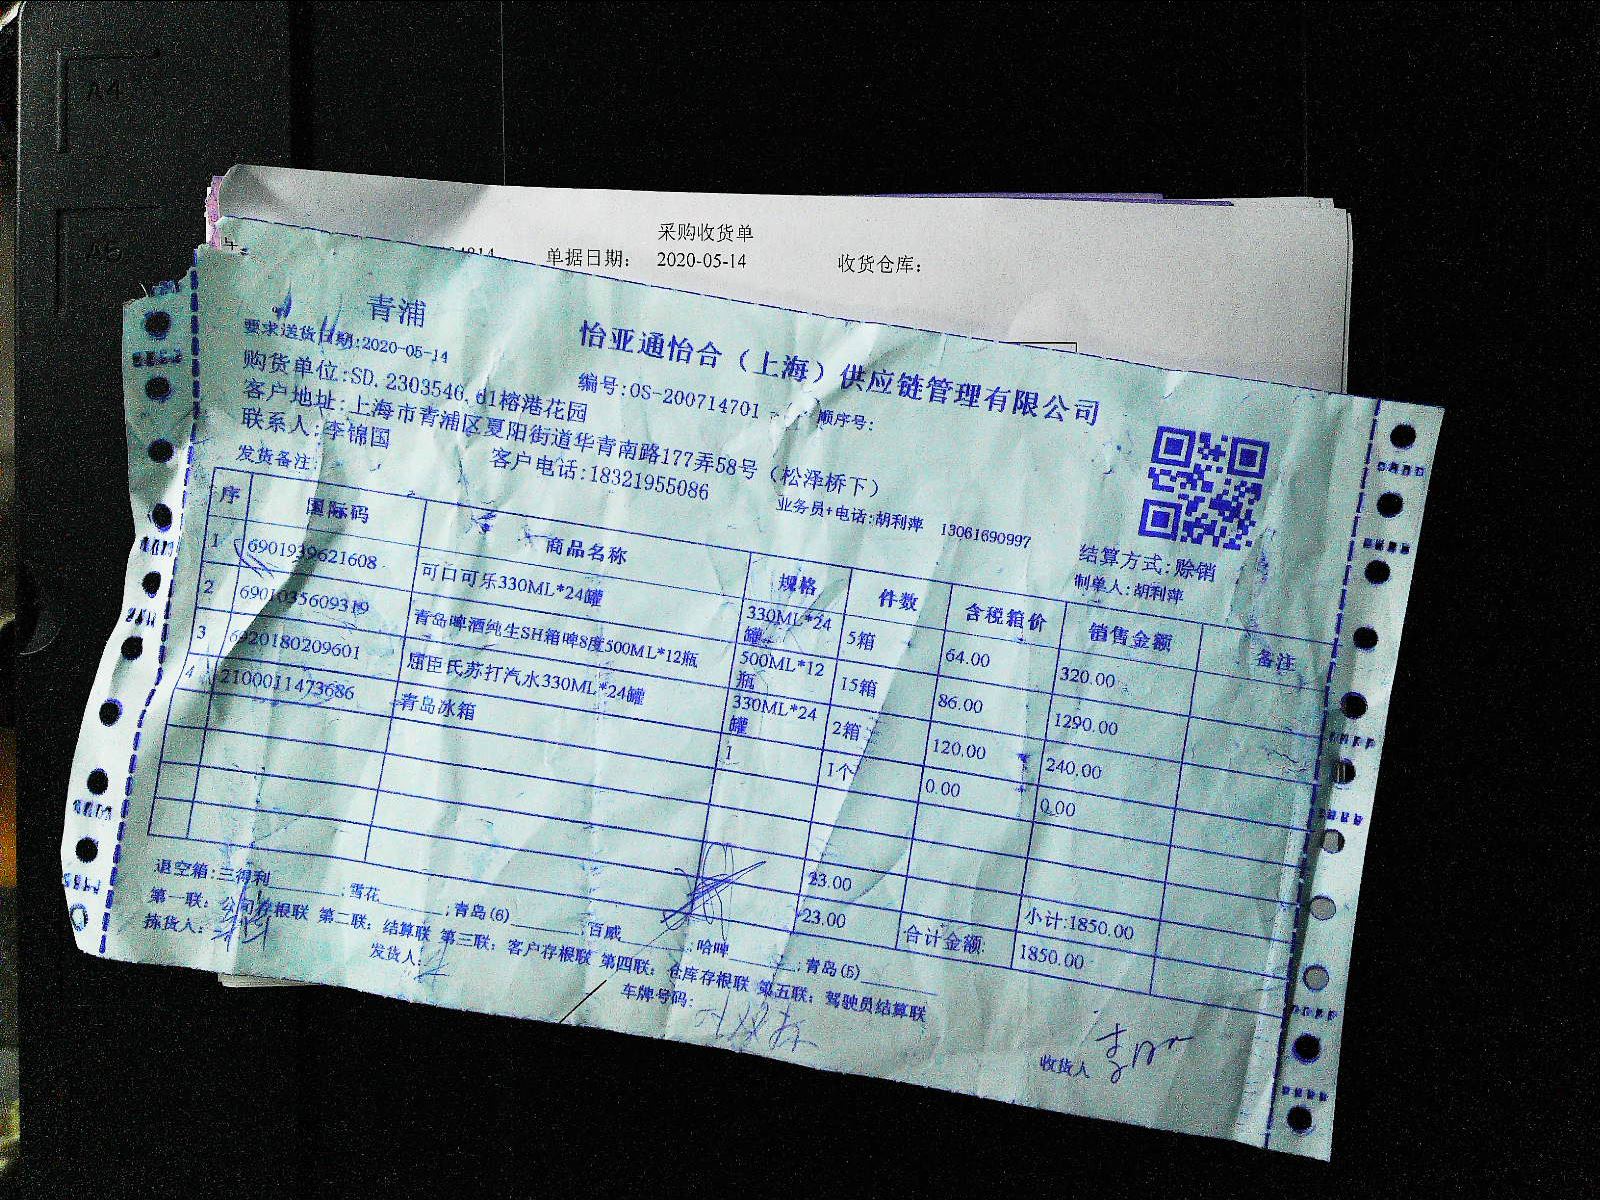 A4
A5
采购收货单
单据日期： 2020-05-14 收货仓库：
青浦
怡亚通怡合（上海）供应链管理有限公司
要求送货日期:2020-05-14
编号:OS-200714701 顺序号:
购货单位:SD.2303546.d1榕港花园
客户地址:上海市青浦区夏阳街道华青南路177弄58号（松泽桥下）
联系人:李锦国 客户电话:18321955086 业务员+电话:胡利萍 13061690997 结算方式:赊销
发货备注: 制单人:胡利萍
序 国际码 商品名称 规格 件数 含税箱价 销售金额 备注
1 6901939621608 可口可乐330ML*24罐 330ML*24罐 5箱 64.00 320.00
2 6901035609319 青岛啤酒纯生SH箱啤8度500ML*12瓶 500ML*12瓶 15箱 86.00 1290.00
3 6920180209601 屈臣氏苏打汽水330ML*24罐 330ML*24罐 2箱 120.00 240.00
4 2100011473686 青岛冰箱 1 1个 0.00 0.00
23.00 小计:1850.00
23.00 合计金额: 1850.00
退空箱:三得利________;雪花________;青岛(6)________;百威________;哈啤________;青岛(5)________
第一联：公司存根联 第二联：结算联 第三联：客户存根联 第四联：仓库存根联 第五联：驾驶员结算联
拣货人: 发货人: 车牌号码: 收货人